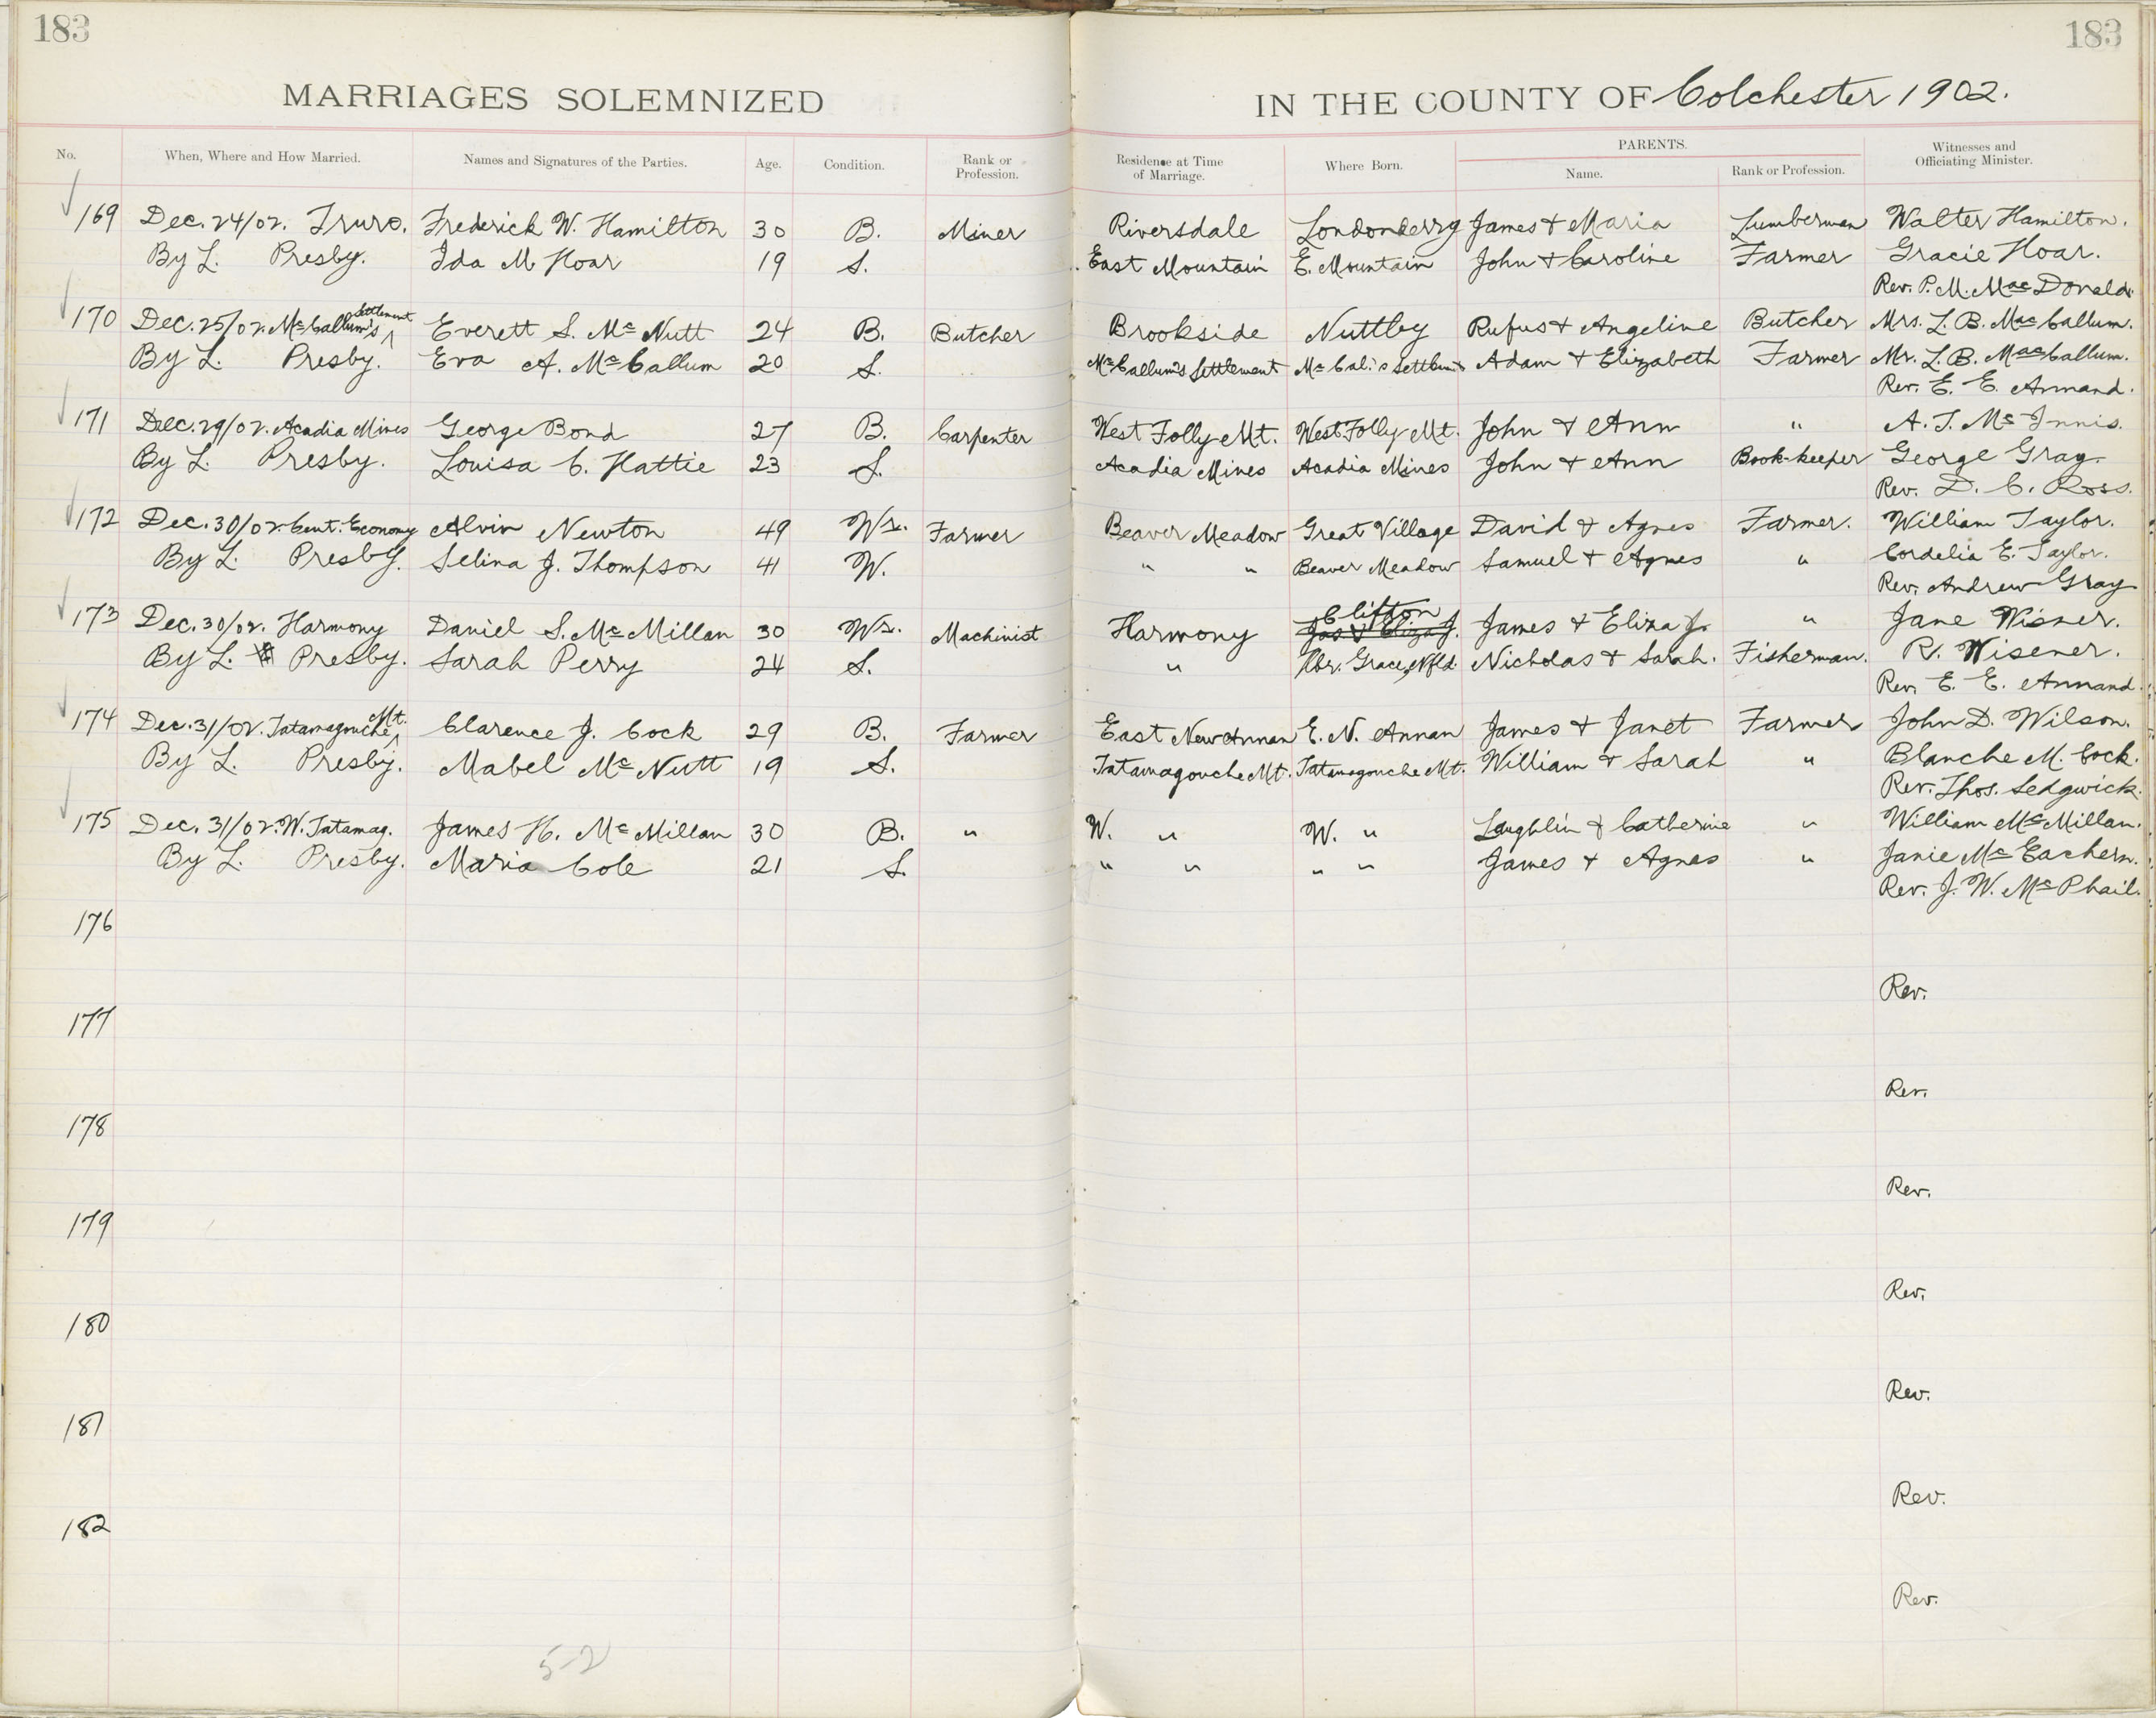 183 183
MARRIAGES SOLEMNIZED IN THE COUNTY OF Colchester 1902.
No. When, Where and How Married. Names and Signatures of the Parties. Age. Condition. Rank or Profession. Residence at Time of Marriage. Where Born. PARENTS. Name. Rank or Profession. Witnesses and Officiating Minister.
169 Dec. 24/02. Truro. Frederick W. Hamilton 30 B. Miner Riversdale Londonderry James & Maria Lumberman Walter Hamilton.
By L. Presby. Ida M Hoar 19 S. East Mountain E. Mountain John & Caroline Farmer Gracie Hoar.
Rev. P. M. MacDonald.
170 Dec. 25/02. McCallum's Settlement Everett S. McNutt 24 B. Butcher Brookside Nuttby Rufus & Angeline Butcher Mrs. L. B. MacCallum.
By L. Presby. Eva A. McCallum 20 S. McCallum's Settlement McCal.'s Settlem't Adam & Elizabeth Farmer Mr. L. B. MacCallum.
Rev. E. E. Annand.
171 Dec. 29/02. Acadia Mines George Bond 27 B. Carpenter West Folly Mt. West Folly Mt. John & Ann " A. T. McInnis.
By L. Presby. Louisa C. Hattie 23 S. Acadia Mines Acadia Mines John & Ann Book-keeper George Gray.
Rev. D. C. Ross.
172 Dec. 30/02. Cent. Economy Alvin Newton 49 Wr. Farmer Beaver Meadow Great Village David & Agnes Farmer. William Taylor.
By L. Presby. Selina J. Thompson 41 W. " " Beaver Meadow Samuel & Agnes " Cordelia E. Taylor.
Rev. Andrew Gray
173 Dec. 30/02. Harmony Daniel S. McMillan 30 Wr. Machinist Harmony Clifton Jas & Eliza J. James & Eliza J. " Jane Wisner.
By L. Presby. Sarah Perry 24 S. " Hbr. Grace, Nfld. Nicholas & Sarah. Fisherman. R. Wisener.
Rev. E. E. Annand.
174 Dec. 31/02. Tatamagouche Mt. Clarence J. Cock 29 B. Farmer East New Annan E. N. Annan James & Janet Farmer John D. Wilson.
By L. Presby. Mabel McNutt 19 S. Tatamagouche Mt. Tatamagouche Mt. William & Sarah " Blanche M. Cock.
Rev. Thos. Sedgwick.
175 Dec. 31/02. W. Tatamag. James H. McMillan 30 B. " W. " W. " Laughlin & Catherine " William McMillan.
By L. Presby. Maria Cole 21 S. " " " " James & Agnes " Janie McEachern.
Rev. J. W. McPhail.
176
Rev.
177
Rev.
178
Rev.
179
Rev.
180
Rev.
181
Rev.
182
Rev.
52